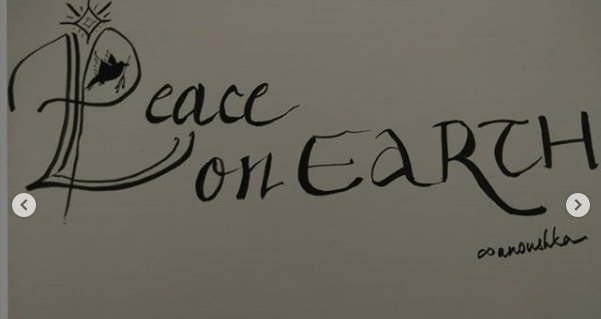 Peace
on EARTH
∞anoushka